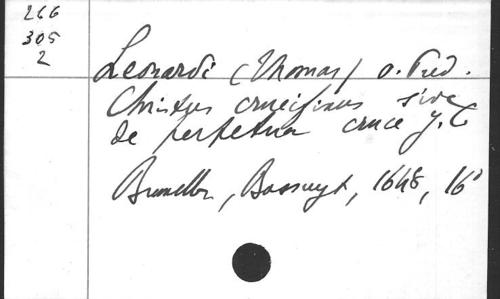 266
305
2
Leonardi (Thomas) o. Pred.
Christus crucifixus sive
de perpetua cruce J. C
Bruxelles, Bossuyt, 1648, 16°